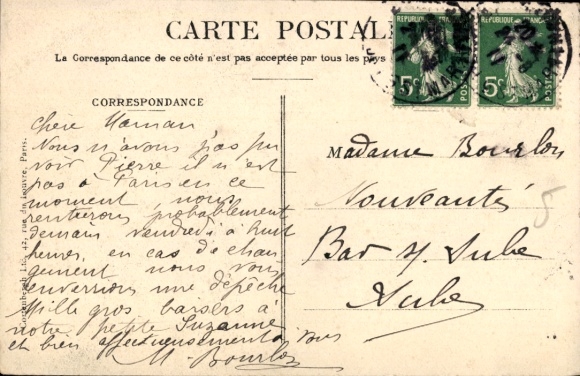 CARTE POSTALE
La Correspondance de ce côté n'est pas acceptée par tous les pays
REPUBLIQUE FRANÇAISE
5c
POSTES
REPUBLIQUE FRANÇAISE
5c
POSTES
CORRESPONDANCE
Chère Maman
Nous n'avons pas pu
voir Pierre il n'est
pas à Paris en ce
moment, nous
rentrerons probablement
demain vendredi à huit
heures, en cas de chan
gement nous vous
enverrions une dépêche
Mille gros baisers à
notre petite Suzanne
et bien affectueusement à vous
M. Bourlon
Madame Bourlon
Nouveautés
Bar s/ Aube
Aube
5
42, rue du Louvre, Paris.